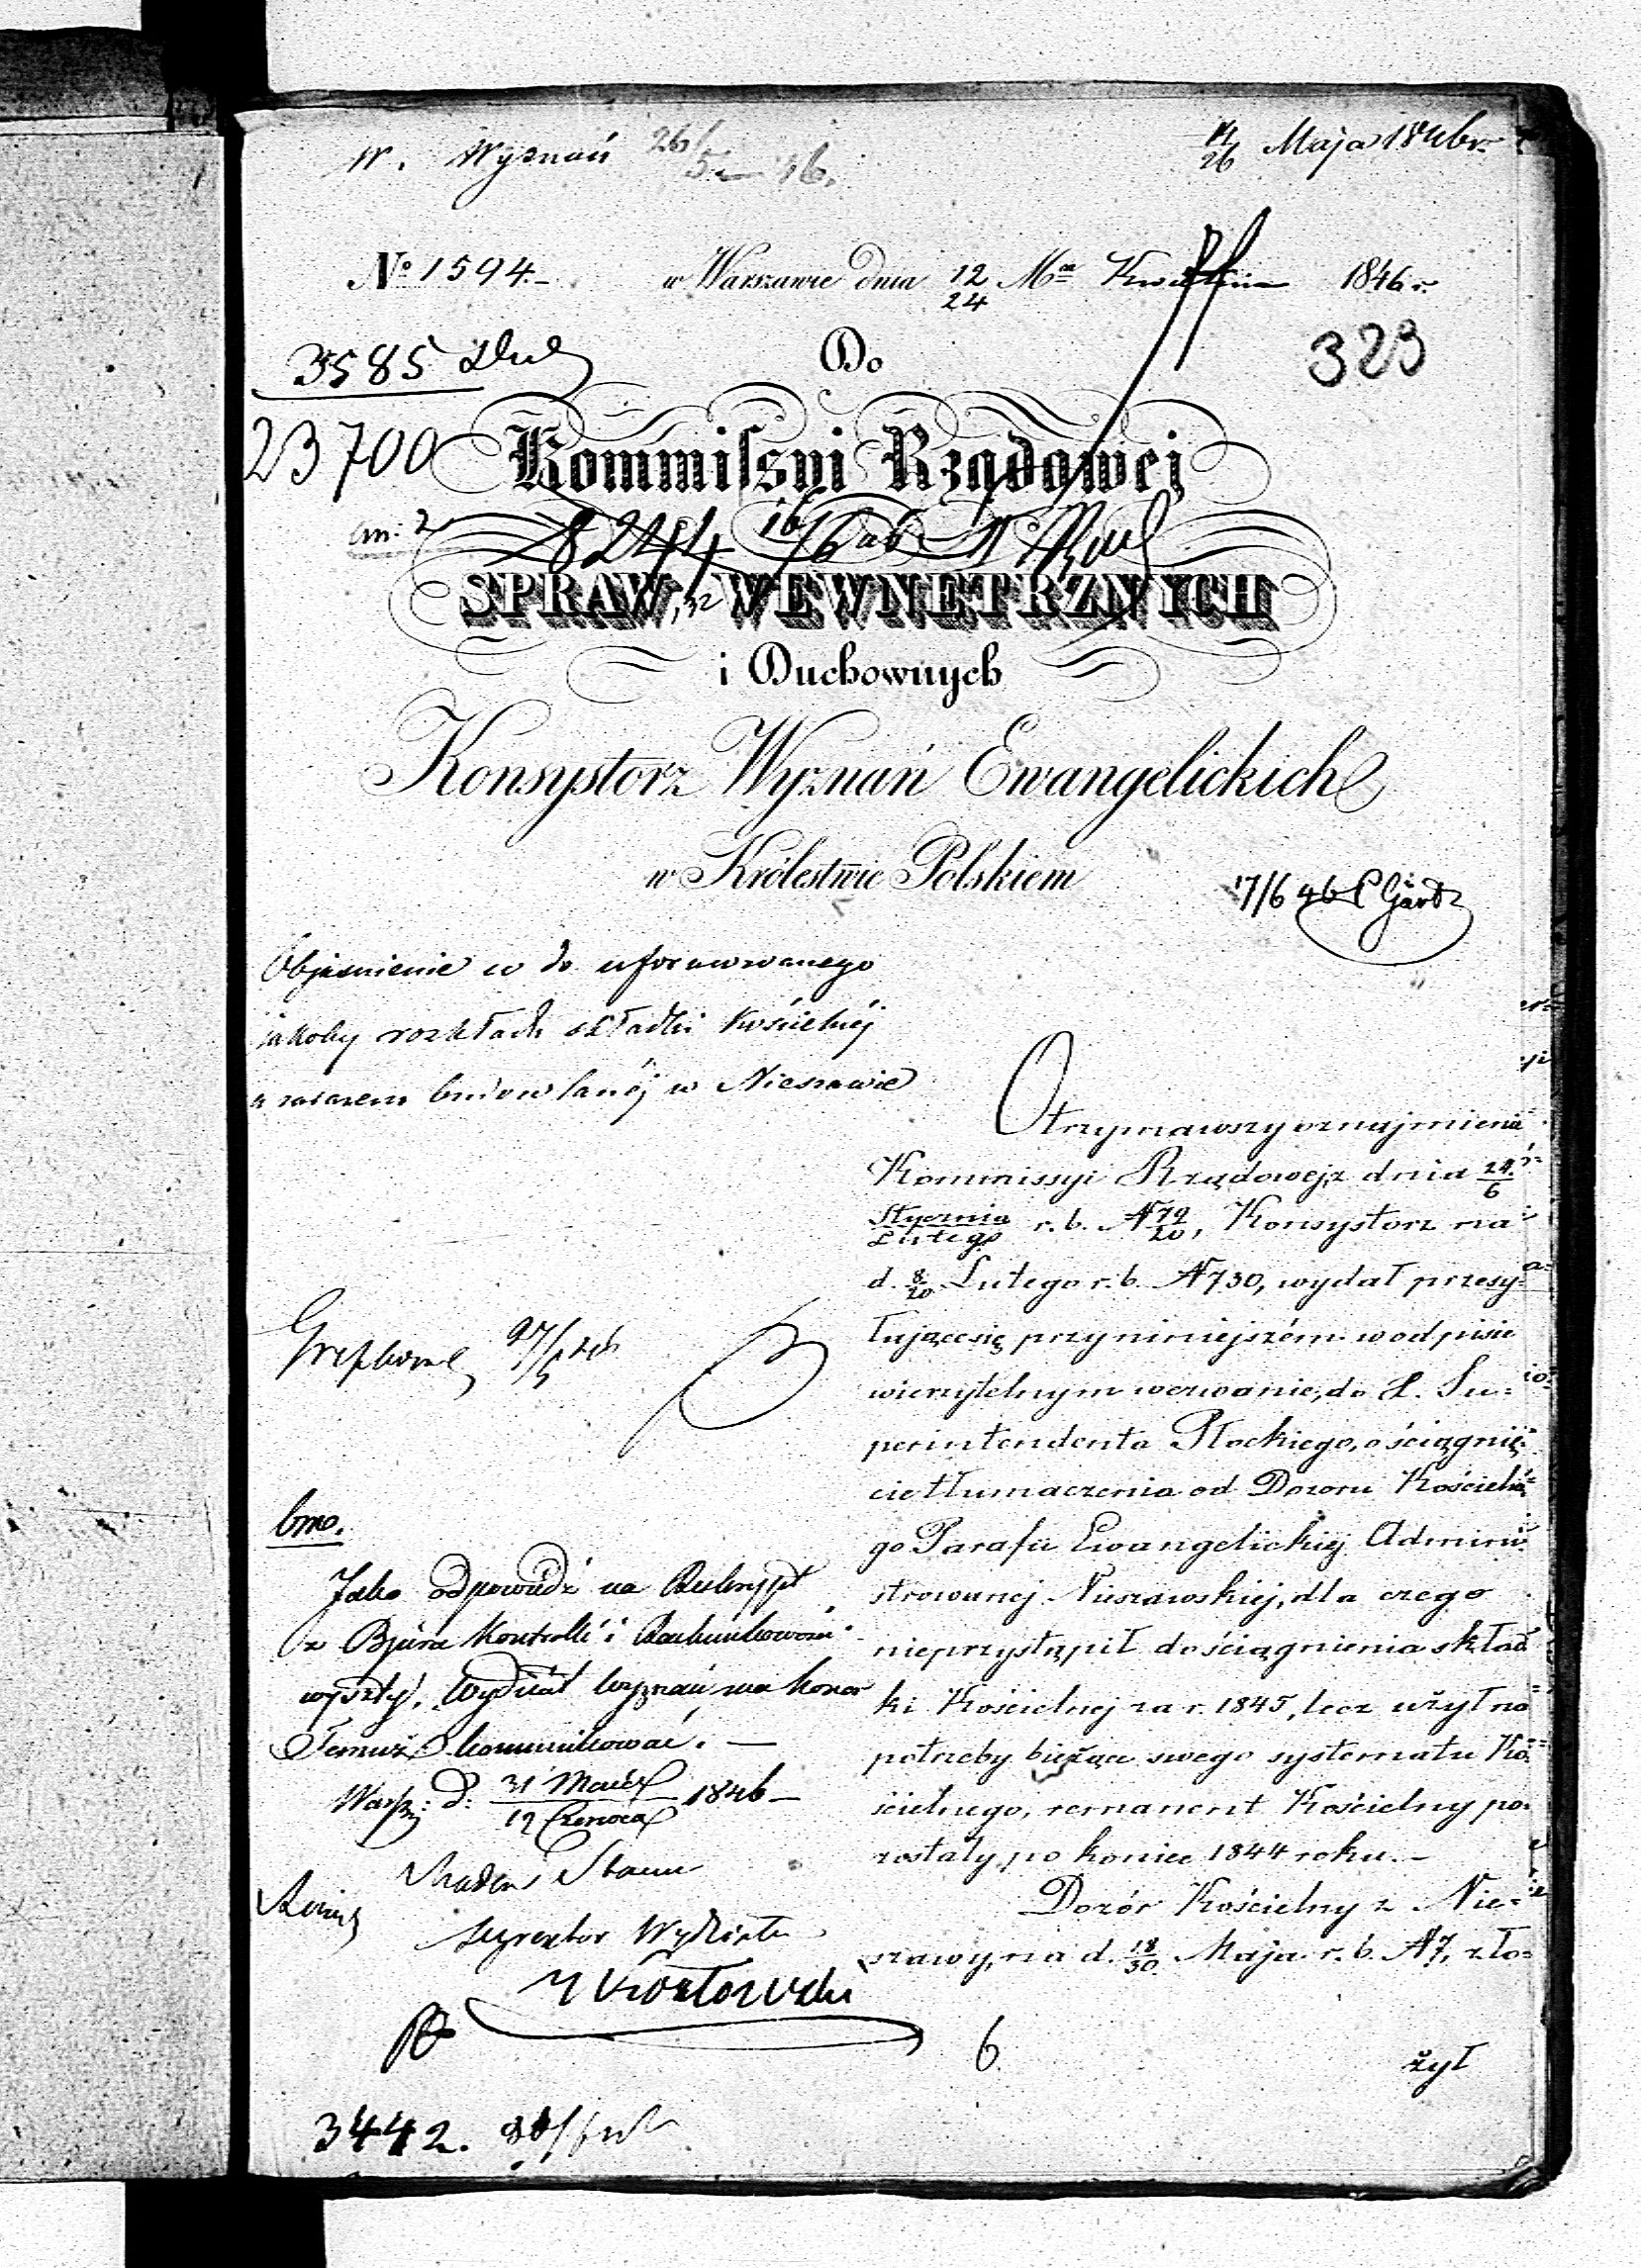 W. Wyznań 26/5 46.
14/26 Maja 1846 r.
No 1594.- w Warszawie dnia 12/24 Ma Kwietnia 1846 r.
3585
Do
323
23700
Kommissyi Rządowej
8244 16/6 46
SPRAW WEWNETRZNYCH
i Duchownych
Konsystorz Wyznań Ewangelickich
w Królestwie Polskiem
17/6 46
Objaśnienie w do uformowanego
jakoby rozkładu składki kościelnéj
a zarazem budowlanéj w Nieszawie
Otrzymawszy oznajmienie
Kommissyi Rządowej z dnia 24/6
Stycznia/Lutego r. b. N 79/20, Konsystorz na
d. 8/20 Lutego r. b. N 730, wydał przesy-
łające się przy niniejszém w odpisie
wierzytelnym wezwanie, do X. Su-
perintendenta Płockiego, o ściągnię-
cie tłumaczenia od Dozoru Kościelne-
go Parafii Ewangelickiej Admini-
strowanej Nieszawskiej, dla czego
nieprzystąpił do ściągnienia skład-
ki Kościelnej za r. 1845, lecz użył na
potrzeby bieżące swego systematu Ko-
ścielnego, remanent Kościelny po-
zostały po koniec 1844 roku. -
Dozór Kościelny z Nie-
szawy, na d. 18/30 Maja r. b. N 7, zło-
żył
bmo.
Jako odpowiedź na Reskrypt
z Bjóra Kontrolli i Rachunkowości
wyszły, Wydział Wyznań ma honor
Temuż kommunikować. -
Warsz: d: 31 Maja/12 Czerwca 1846 -
Radca Stanu
Sekretarz Wydziału
6
3442.